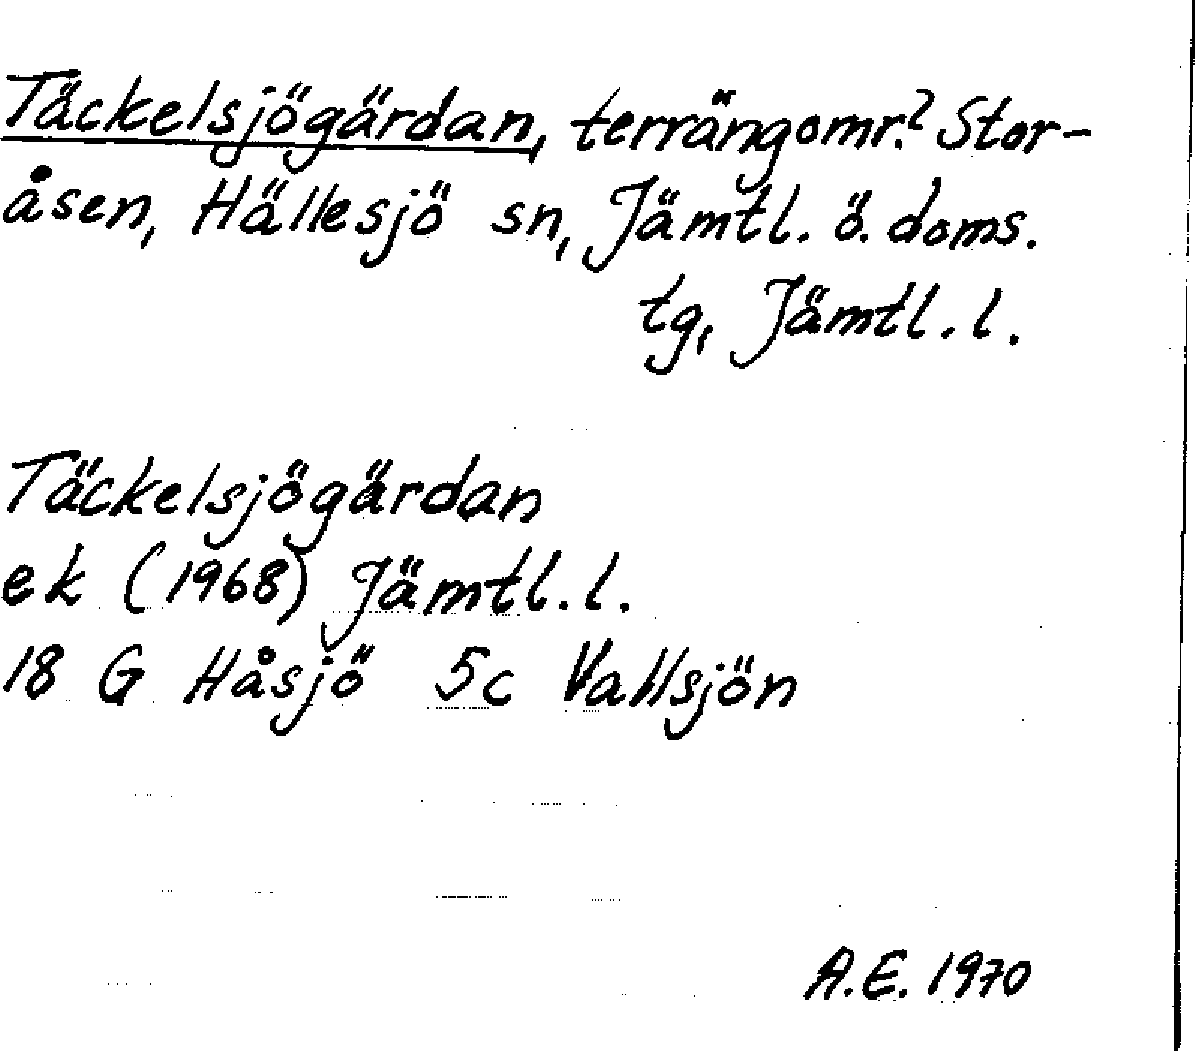 Täckelsjögärdan, terrängomr.? Stor-
åsen, Hällesjö sn, Jämtl. ö. doms.
tg, Jämtl. l.
Täckelsjögärdan
ek (1968) Jämtl. l.
18 G Håsjö 5c Vallsjön
A.E. 1970